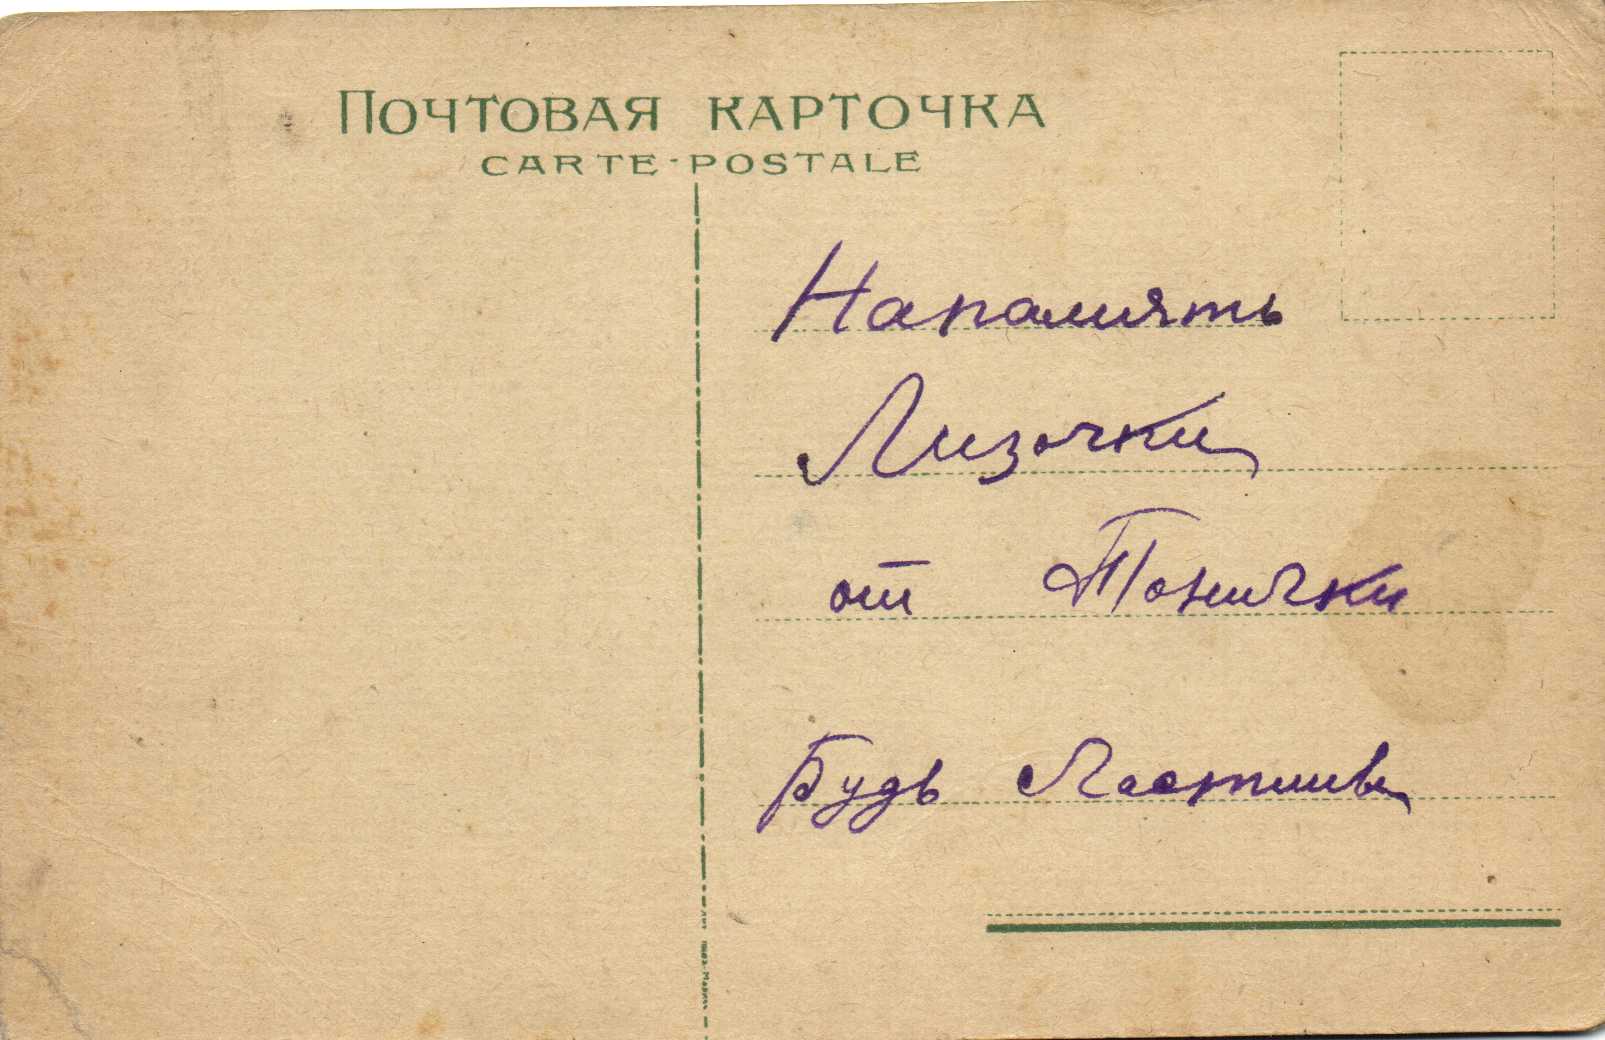 ПОЧТОВАЯ КАРТОЧКА
CARTE-POSTALE
Напамять
Лизочки
от Тонички
Будь